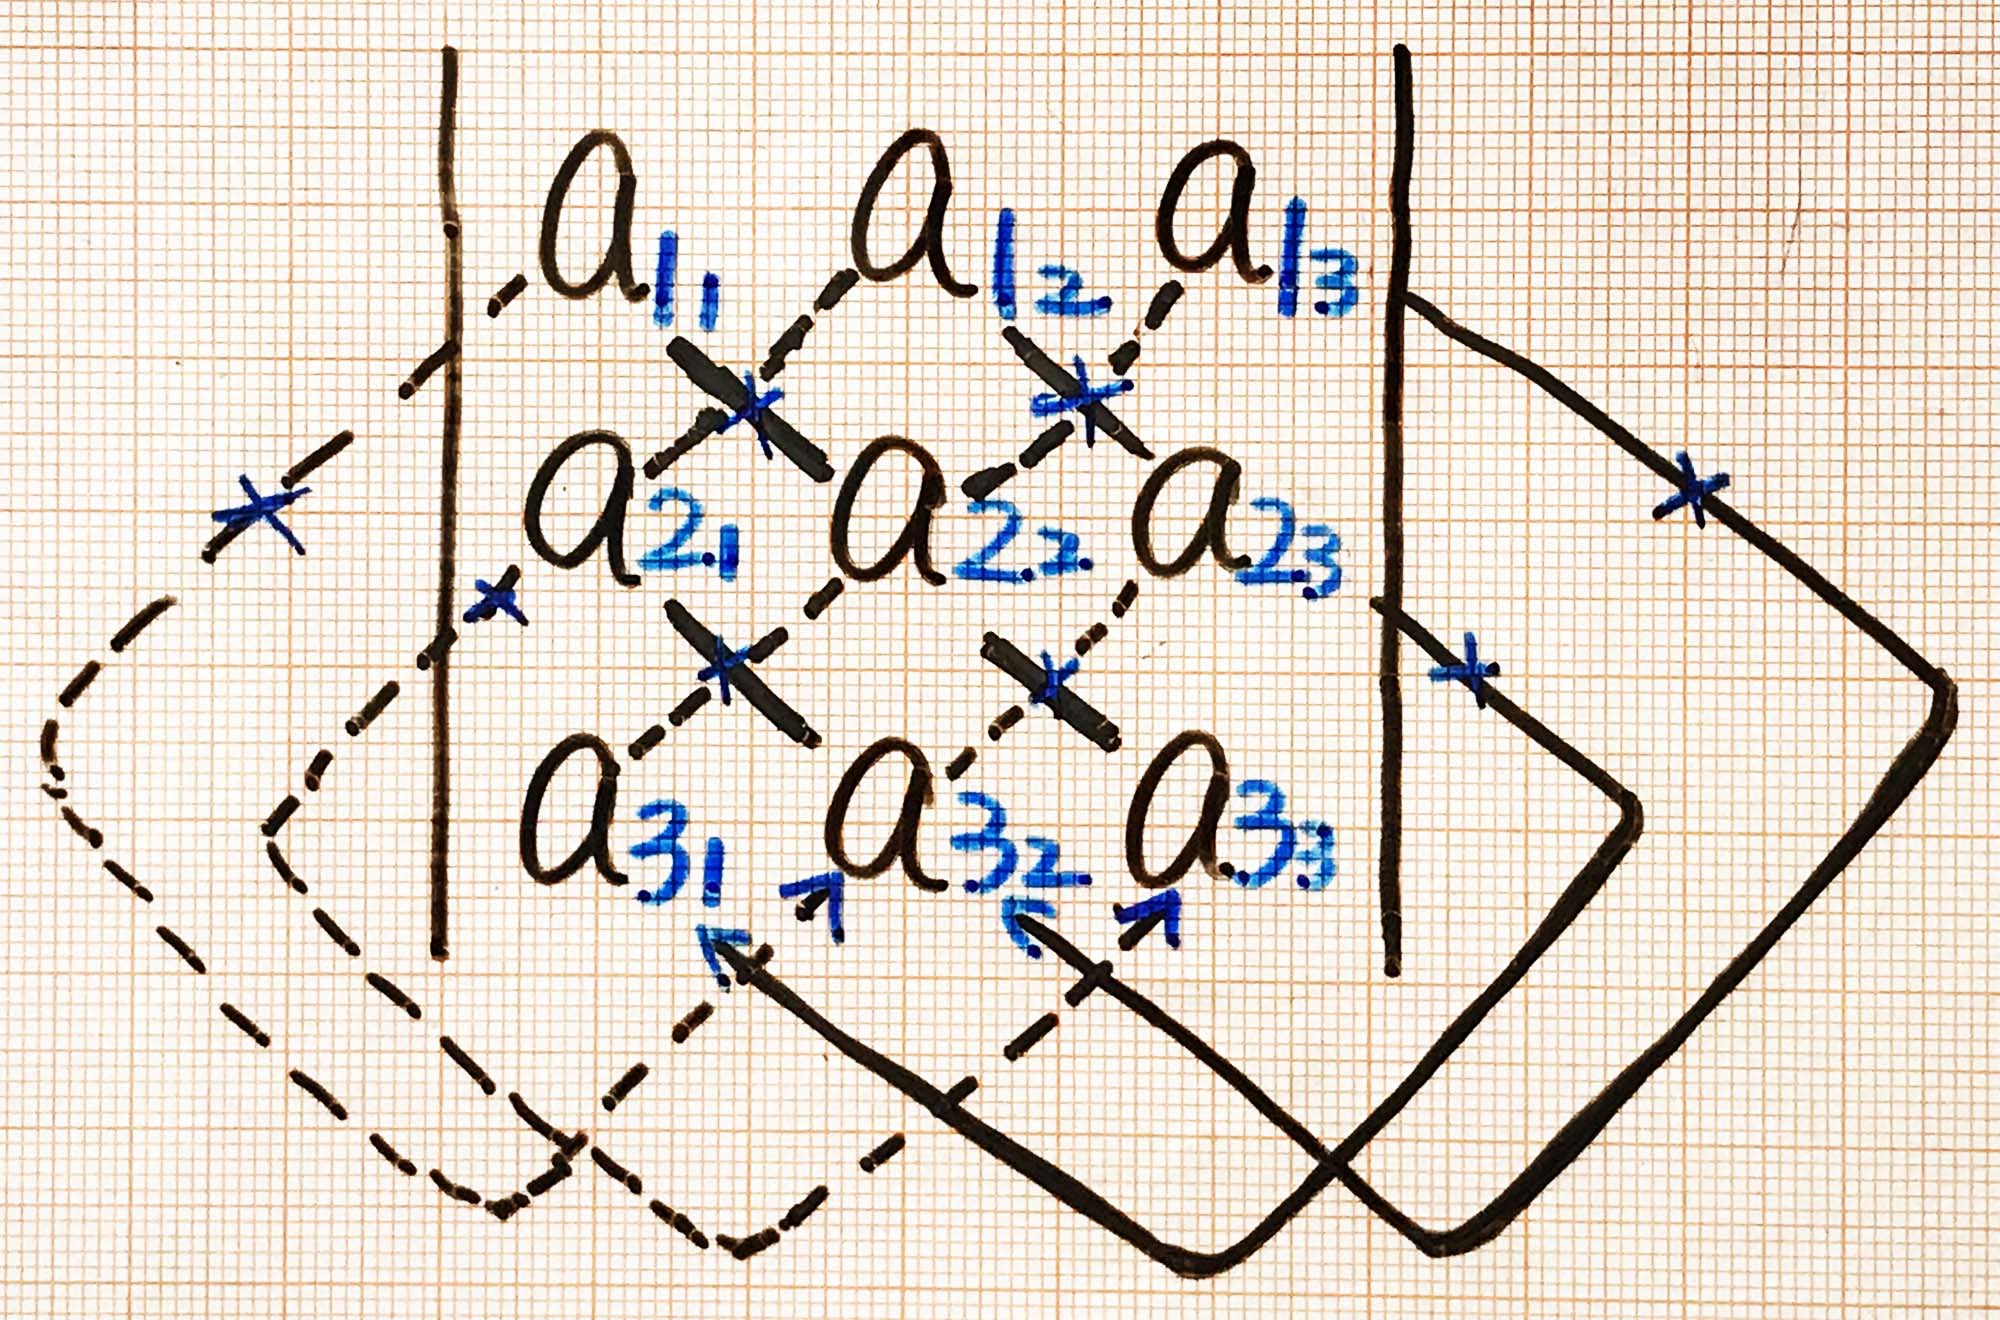 a11 a12 a13
a21 a22 a23
a31 a32 a33